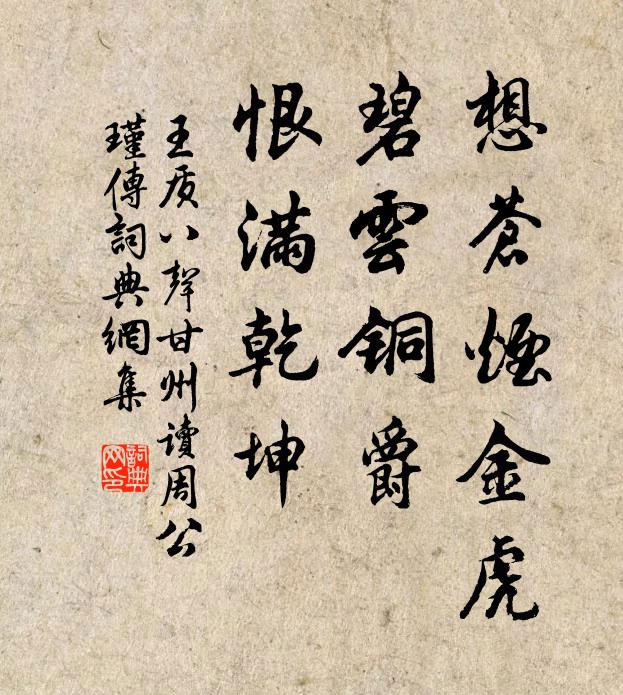 想蒼煙金虎
碧雲銅爵
恨滿乾坤
王质八聲甘州讀周公
瑾傳詞典網集
詞典
网印